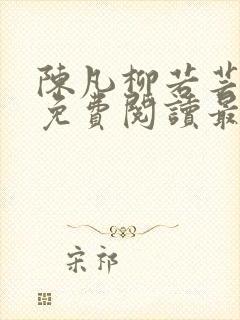 陳凡柳若芸
免費閱讀最
宋祁